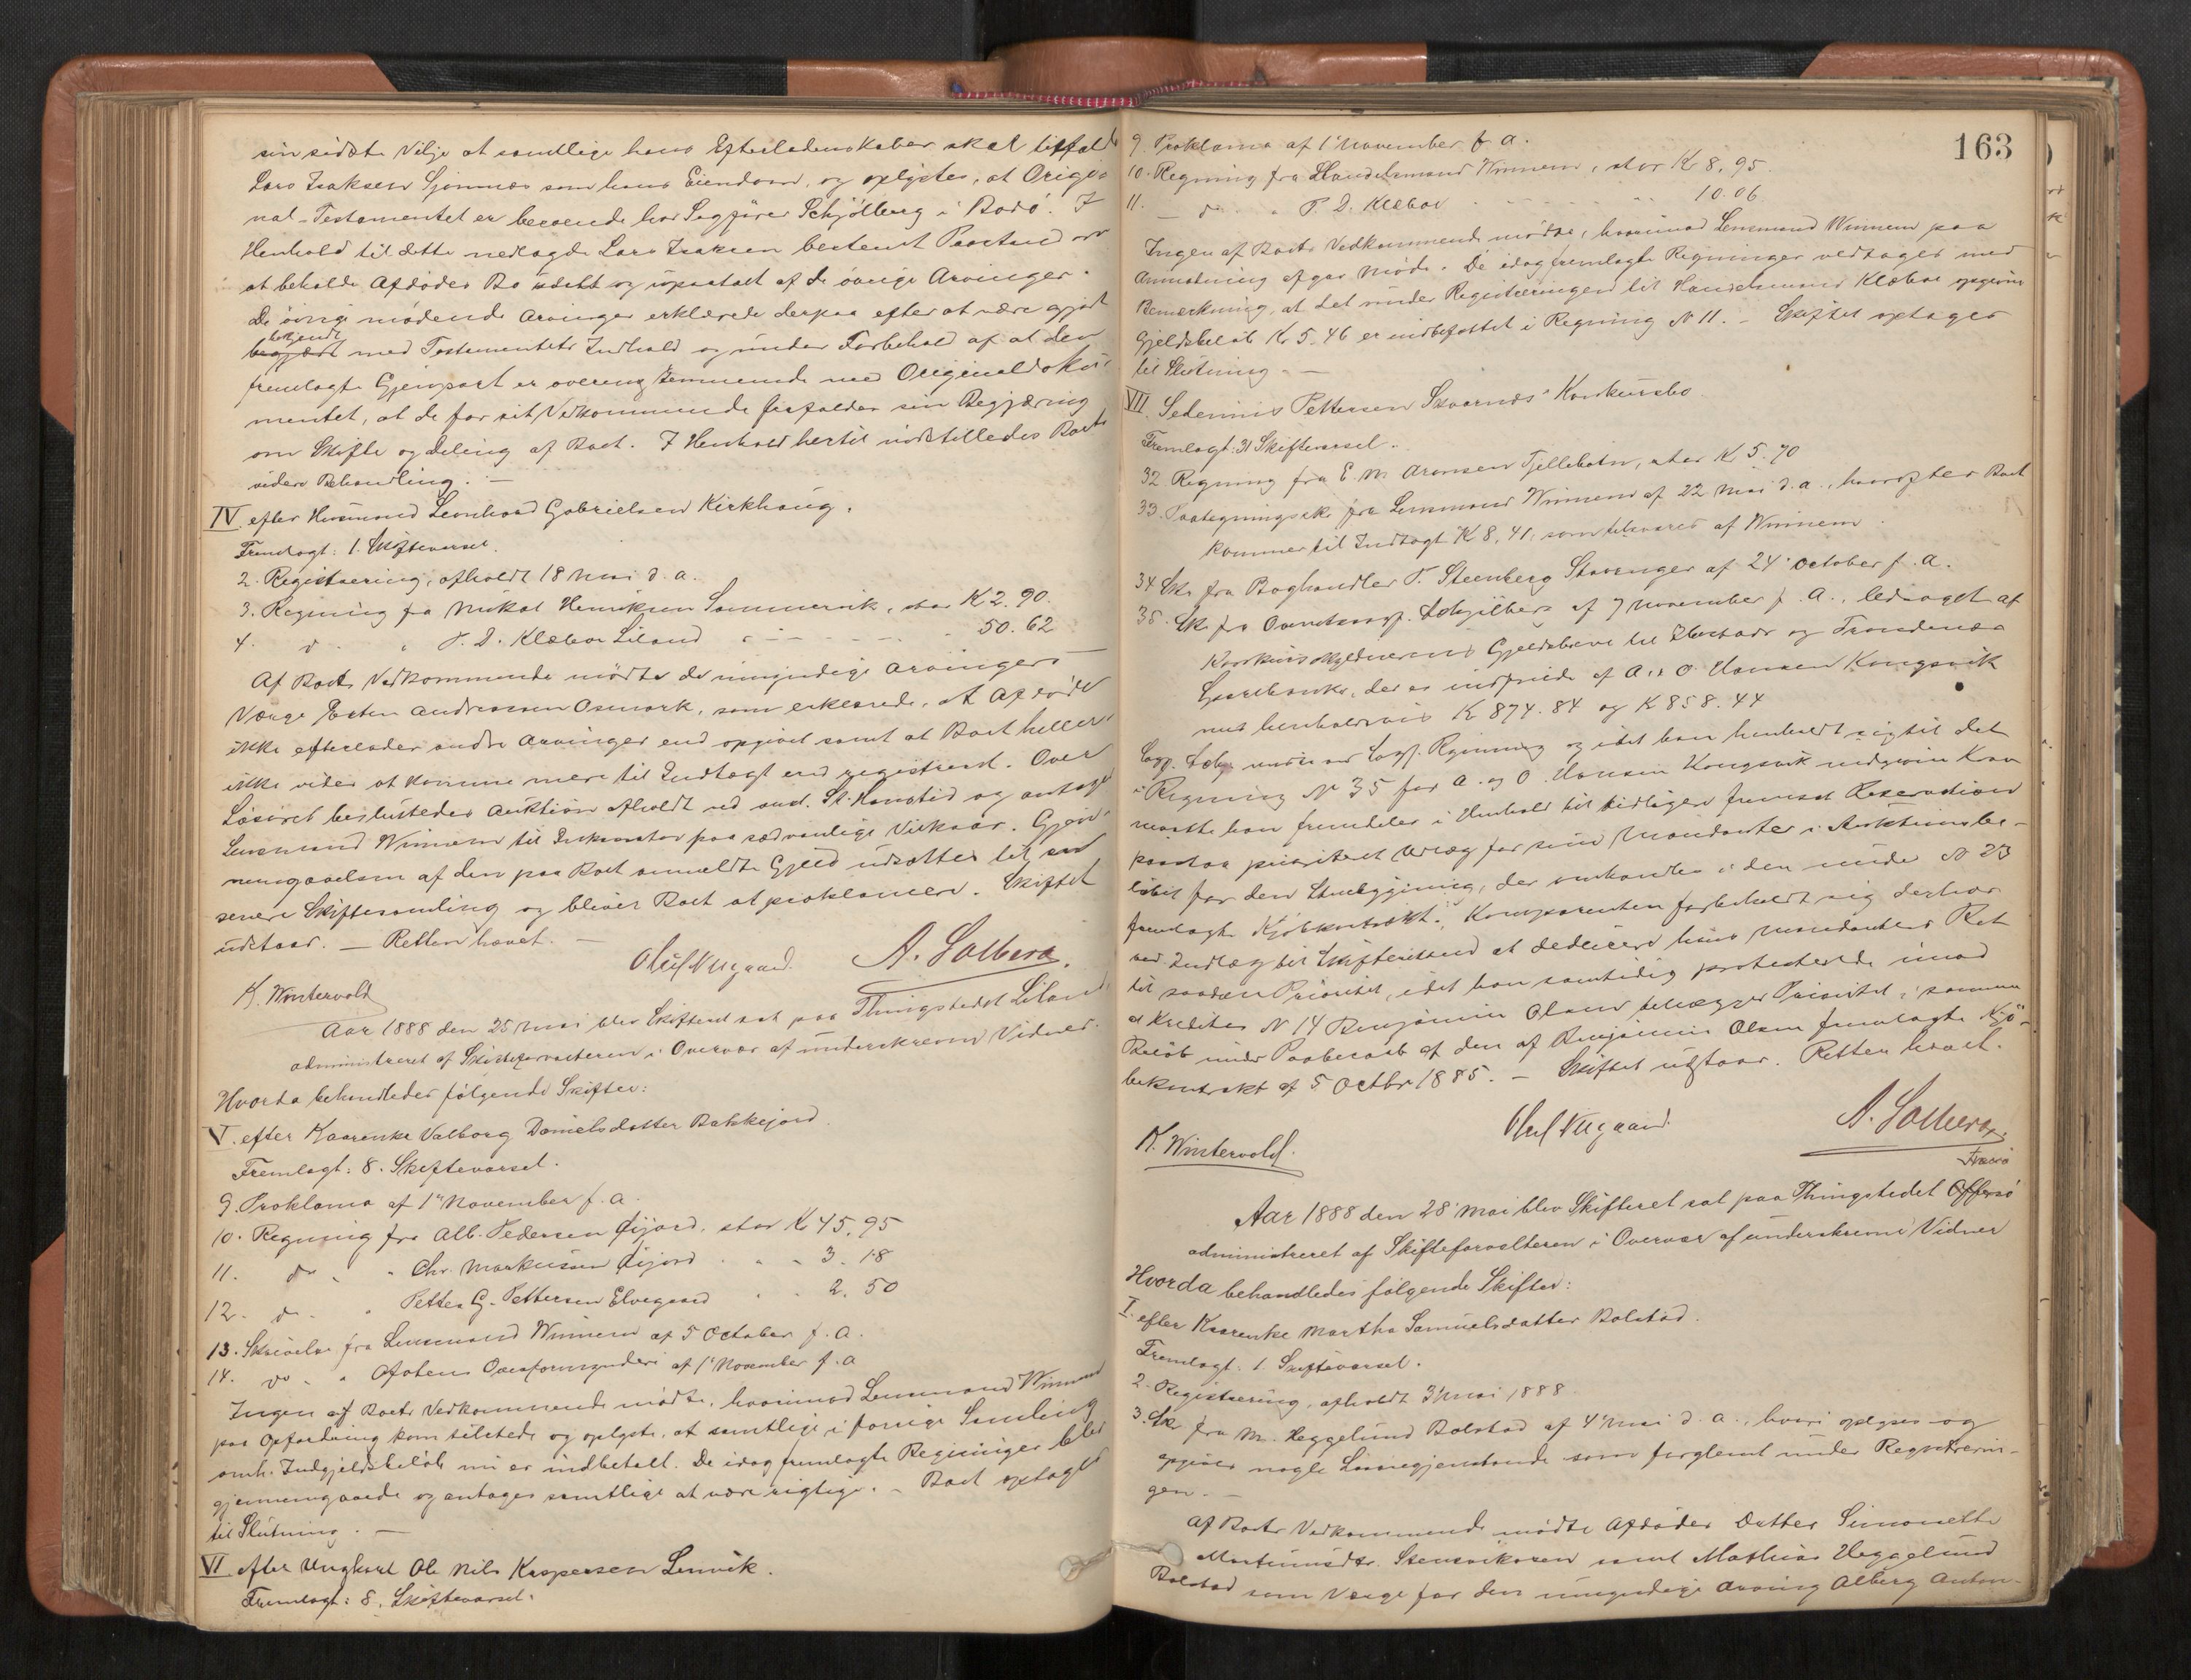 sin sidste Vilje at samtlige hans Efterladenskaber skal tilfalde
Lars Isaksen Sjonnæs som hans Eiendom, og oplystes, at Origi-
nal-Testamentet er beroende hos Sagfører Schjölberg i Bodö. I
Henhold til dette nedlagde Lars Isaksen bestemt Paastand om
at beholde Afdödes Bo udelt og upaatalt af de övrige Arvinger.
De övrige mödende Arvinger erklærede derpaa efter at være gjort
bekjendt
med Testamentets Indhold og under Forbehold af at den
fremlagte Gjenpart er overensstemmende med Originaldoku-
mentet, at de for sit Vedkommende frafalder sin Begjæring
om Skifte og deling af Boet. I Henhold hertil indstilledes Boets
videre Behandling. —
IV. efter Husmand Leonhard Gabrielsen Kirkhaug.
Fremlagt: 1. Skiftevarsel.
2. Registrering, afholdt 18 Mai d. a.
3. Regning fra Mikal Henriksen Sommervik, stor K 2. 90.
4. do " P. D. Klæboe Liland " - - - 50. 62
Af Boets Vedkommende mödte de umyndige Arvingers
Værge Esten Andreassen Osmark, som erklærede, at Afdöde
ikke efterlader andre Arvinger end opgivet samt at Boet heller
ikke vides at komme mere til Indtægt end registreret. Over
Lösöret besluttedes Auktion afholdt ved St. Hanstid og antoges
Lensmand Winnem til Inkassator paa sædvanlige Vilkaar. Gjen-
nemgaaelsen af den paa Boet anmeldte Gjæld udsættes til en
senere Skiftesamling og bliver Boet at proklamere. Skiftet
udstaar. — Retten hævet. —
Oluf Nygaard. A. Solberg.
K. Wintervold
Aar 1888 den 25 Mai blev Skifteret sat paa Thingstedet Liland
administreret af Skifteforvalteren i Overvær af underskrevne Vidner.
Hvorda behandledes følgende Skifter:
V. efter Kaarenke Valborg Danielsdatter Bakkejord.
Fremlagt: 8. Skiftevarsel.
9. Proklama af 1' November f. a.
10. Regning fra Alb. Pedersen Öijord. stor Kr 45. 95
11. do " " Chr. Markussen Öijord " " 3. 18
12. do " Petter G. Pettersen Elvegaard " " 2. 50
13. Skrivelse fra Lensmand Winnem af 5 October f. a.
14. do " " Ofotens Overformynderi af 1' November f. a
Ingen af Boets Vedkommende mödte, hvorimod Lensmand Winnem
paa Opfordring kom tilstede og oplyste, at samtlige i forrige Samling
omh. Indgjeldsbeløb nu er indbetalt. De idag fremlagte Regninger blev
gjennemgaaede og antages samtlige at være rigtige. – Boet optages
til Slutning. —
VI efter Ungkarl Ole Nils Kaspersen Lenvik.
Fremlagt: 8. Skiftevarsel.
163
9. Proklama af 1' November f. a.
10. Regning fra Handelsmand Winnem, stor Kr 8. 95.
11. — do " " P. D. Klæboe - - - " " 10. 06
Ingen af Boets Vedkommende mödte, hvorimod Lensmand Winnem paa
Anmodning afgav Möde. De idag fremlagte Regninger vedtages med
Bemærkning, at det under Registreringen til Handelsmand Klæboe opgivne
Gjeldsbeløb Kr 5. 46 er indbefattet i Regning N 11. – Skiftet optages
til Slutning. —
VII. Sedenius Pettersen Skaarnæs' Konkursbo.
Fremlagt: 31 Skiftevarsel.
32. Regning fra E. M. Aronsen Fjelleboln, stor K 5. 70
33. Paategningssk. fra Lensmand Winnem af 22 Mai d. a., hvorefter Boet
kommer til Indtægt K 8. 41, som bevares af Winnem.
34 Sk. fra Boghandler P. Steenberg Stavanger af 24' October f. a.
35. Sk. fra Overretssagf. Schjölberg af 7 November f. a., ledsaget af
Konkursskyldnerens Gjeldsbreve til Ibestads og Trondenæs
Sparebanks, der er indfriede af A. & O. Hansen Kongsvik
med henholdsvis K 874. 84 og K 858. 44
Sagf. mödte ved Sagf. Rynning og idet han henholdt sig til det
i Regning N 35 for A. og O. Hansen Kongsvik nedgivne Krav
maatte han fremdeles i Henhold til tidligere fremsat Reservation
paastaa prioriteret Udlæg for sine Mandanter i Auktionsbe-
löbet for den Stuebygning, der omhandles i den under N 23
fremlagte Kjöbkontrakt. Komparenten forbeholdt sig derhos
ved Indlæg til Skifteretten at deducere hans Mandanters Ret
til saadan Prioritet, idet han samtidig protesterede imod
at Kreditor N 14 Benjamin Olsen tillægges Prioritet i samme
Beløb under Paaberaab af den af Benjamin Olsen fremlagte Kjö-
bekontrakt af 5 Octbr 1885. — Skiftet udstaar. Retten hævet.
Oluf Nygaard. A. Solberg.
K. Wintervold.
Aar 1888 den 28' Mai blev Skifteret sat paa Thingstedet Offersö
administreret af Skifteforvalteren i Overvær af underskrevne Vidner
Hvorda behandledes følgende Skifter:
I. efter Kaarenke Martha Samuelsdatter Bolstad.
Fremlagt: 1. Skiftevarsel.
2. Registrering, afholdt 3' Mai 1888
3. Sk. fra M. Heggelund Bolstad af 4' Mai d. a., hvori oplyses og
opgives nogle Løsøregjenstande som forglemt under Registrerin-
gen. —
Af Boets Vedkommende mödte Afdödes Datter Simonette
Martinusdtr. Stensvikoren samt Mathias Heggelund
Bolstad som Værge for den umyndige Arving Alberg Anton-